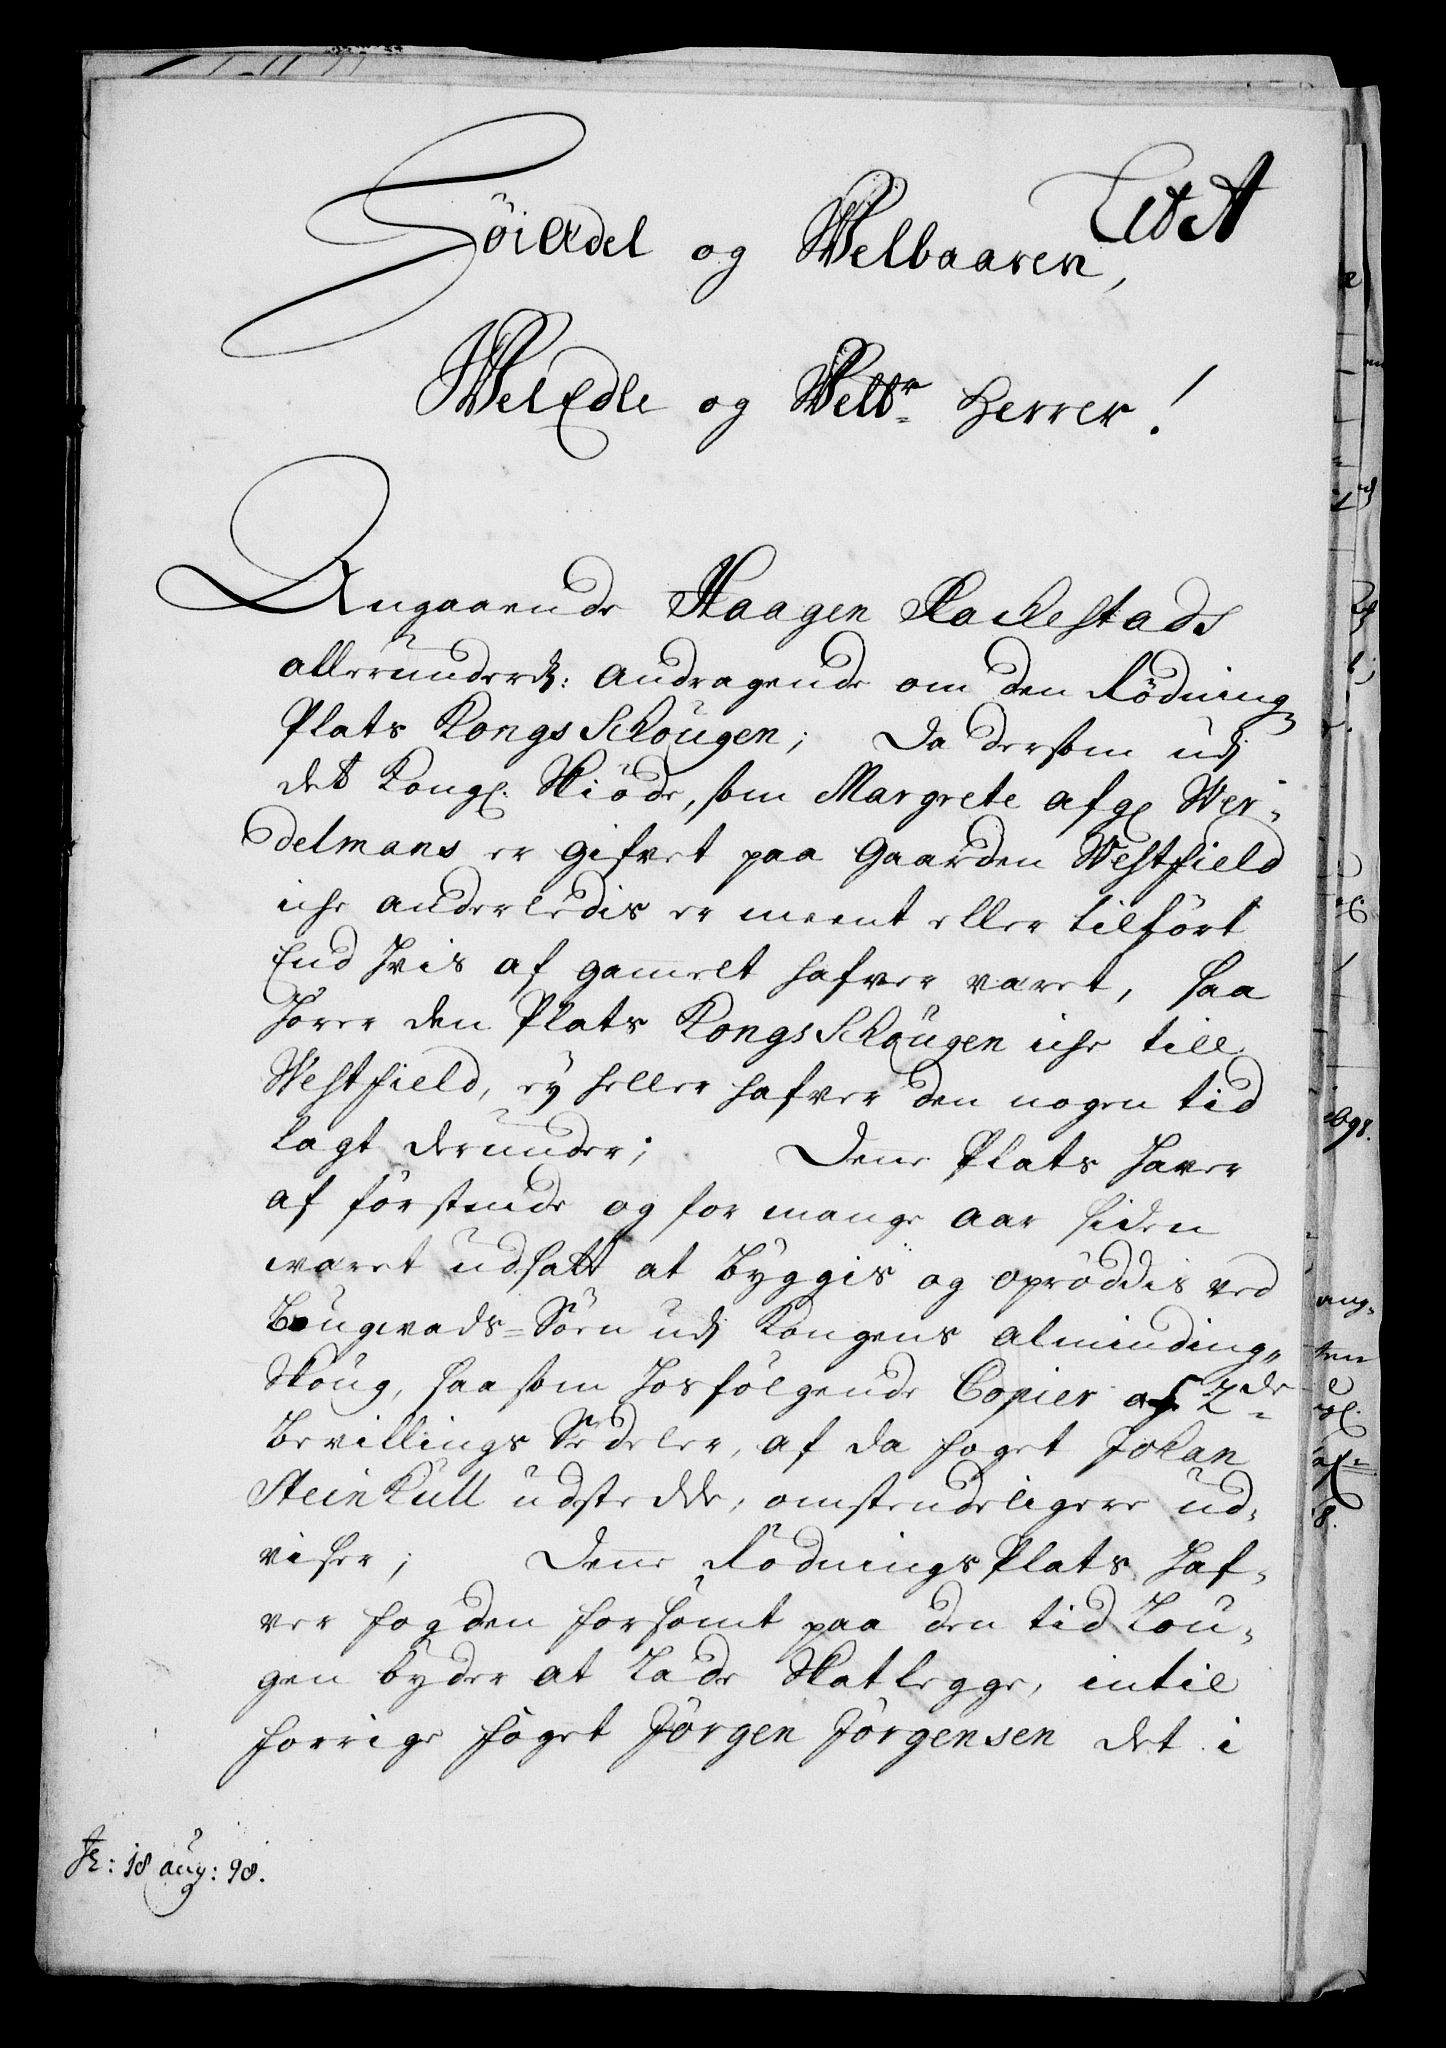 Lit A
HöiÆdel og Welbaaren,
WelEdle og Welbr Herrer!
Angaaende Haagen Rachestads
allerunderd: andragende om den Rödnings
Plats KongsSchougen; Da dersom udj
det Kongl. Skiöde, som Margrete afgl Wer-
delmans er gifvet paa Gaarden Westfield
iche anderledis er meent eller tilfört
End Hvis af gammelt hafver varet, saa
Hörer den Plats KongsSchougen iche till
Westfield, ey heller hafver den nogen tid
lagt derunder; Denne Plats Haver
af förstende og for mange aar siden
waret udsatt at Byggis og opröddis ved
Bougwads-Söen udj Kongens alminding,,
Skoug, saa som Hosfölgende Copier af 2de
Bevillings Sedeler, af da foget Johan
SteinKull udstedde, omstendeligere ud-
viser; Denne RödningsPlats Haf-
ver fogden forsömt paa den tid Lou-
gen byder at Lade Skatlegge, intil
forrige foget Jörgen Jörgensen det i
18 aug: 98.